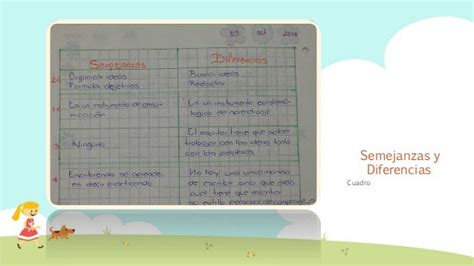 03 oct 2015
Semejanzas
Diferencias
Organizar ideas
Formular objetivos
ideas
Redactar
1.
Es un instrumento de comuni-
cación
Es un instrumento
de aprendizaje
3.
Ninguno.
El escritor tiene que saber
trabajar con las ideas tanto
con las palabras.
4.
Escribiendo se aprende,
es decir practicando.
No hay una unica manera
de escribir sino que cada
cual tiene que encontrar
su estilo personal de composición
Semejanzas y
Diferencias
Cuadro